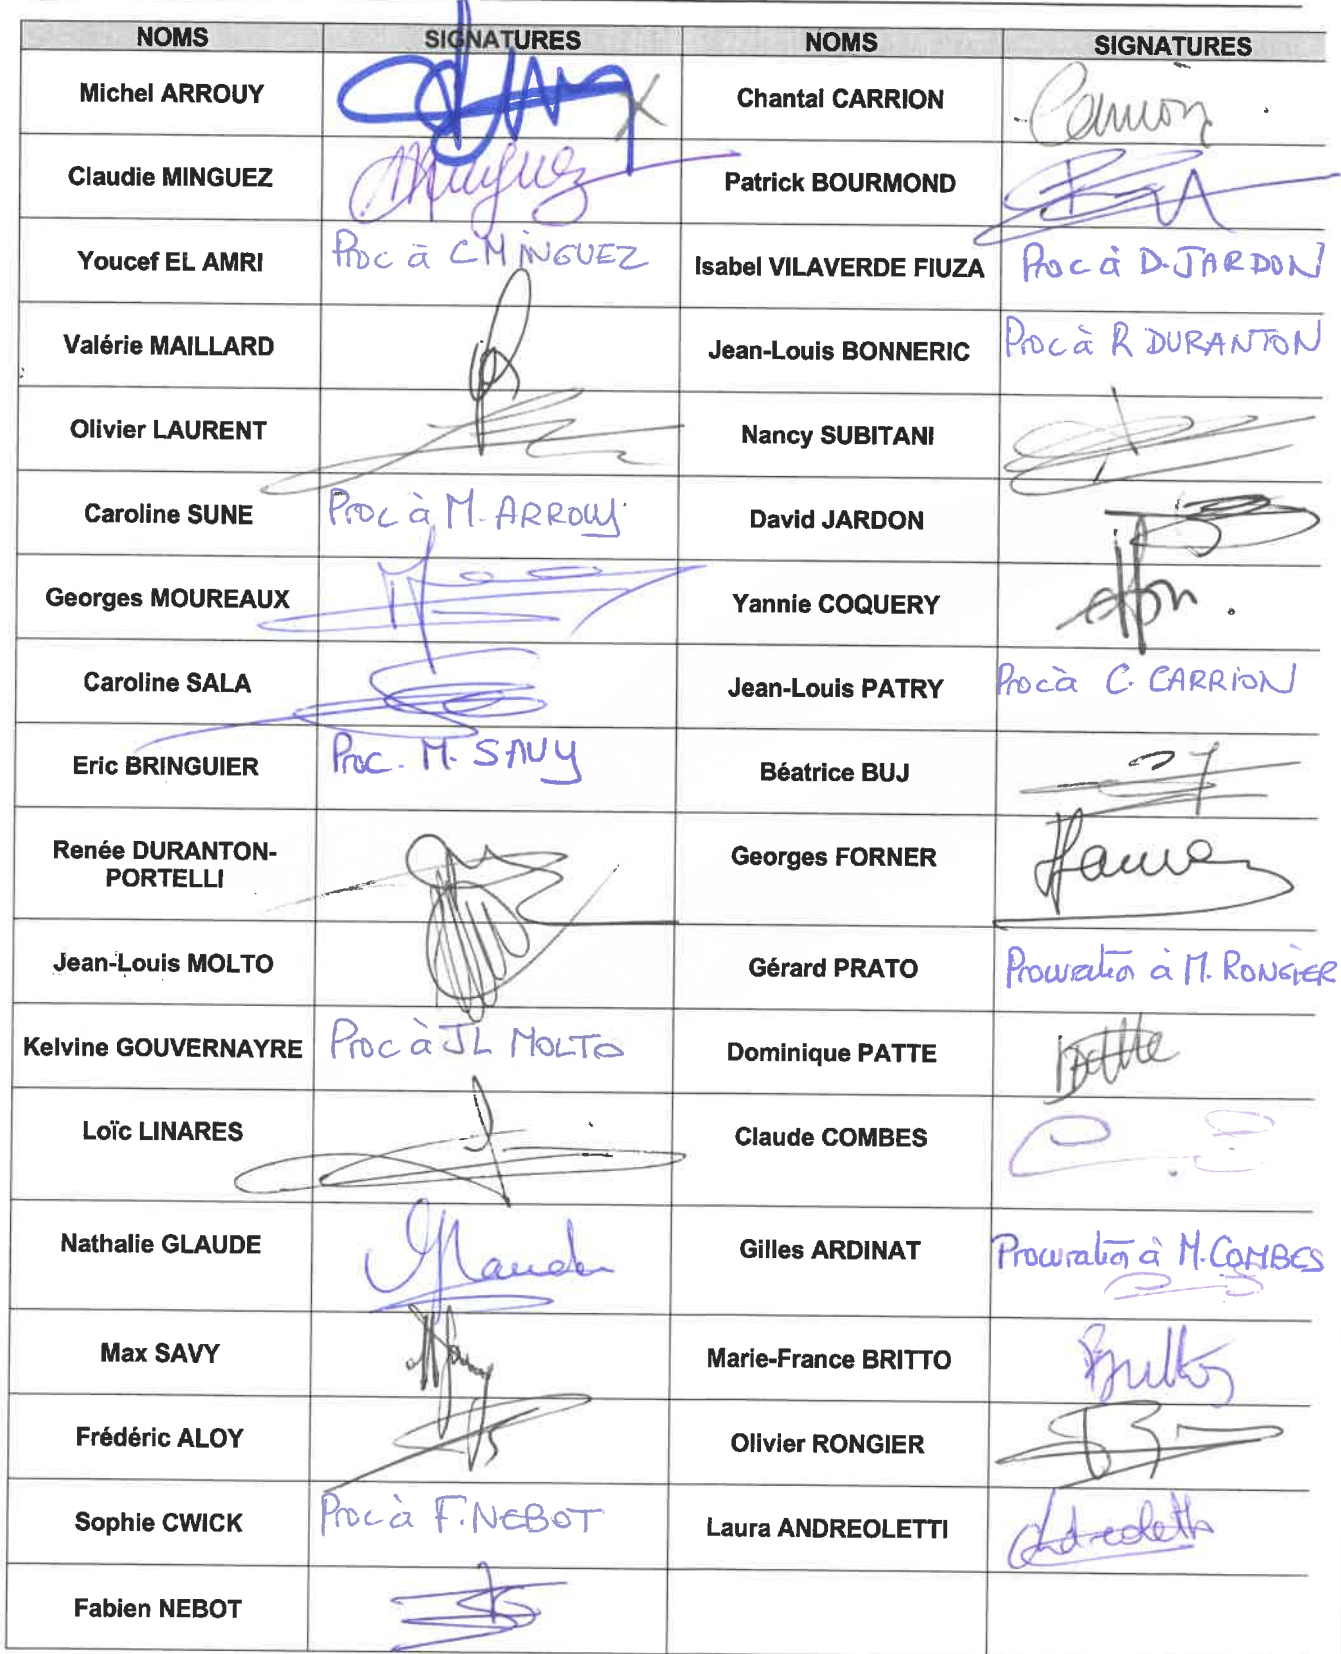 NOMS SIGNATURES NOMS SIGNATURES
Michel ARROUY Chantal CARRION Carrion
Claudie MINGUEZ Minguez Patrick BOURMOND
Youcef EL AMRI Proc à C MINGUEZ Isabel VILAVERDE FIUZA Proc à D. JARDON
Valérie MAILLARD Jean-Louis BONNERIC Proc à R DURANTON
Olivier LAURENT Nancy SUBITANI
Caroline SUNE Proc à M. ARROUY David JARDON
Georges MOUREAUX Yannie COQUERY
Caroline SALA Jean-Louis PATRY Proc à C. CARRION
Eric BRINGUIER Proc. M. SAVY Béatrice BUJ
Renée DURANTON-
PORTELLI Georges FORNER
Jean-Louis MOLTO Gérard PRATO Procuration à M. RONGIER
Kelvine GOUVERNAYRE Proc à JL MOLTO Dominique PATTE Patte
Loïc LINARES Claude COMBES
Nathalie GLAUDE Glaude Gilles ARDINAT Procuration à M. COMBES
Max SAVY Marie-France BRITTO Britto
Frédéric ALOY Olivier RONGIER
Sophie CWICK Proc à F. NEBOT Laura ANDREOLETTI Andreoletti
Fabien NEBOT